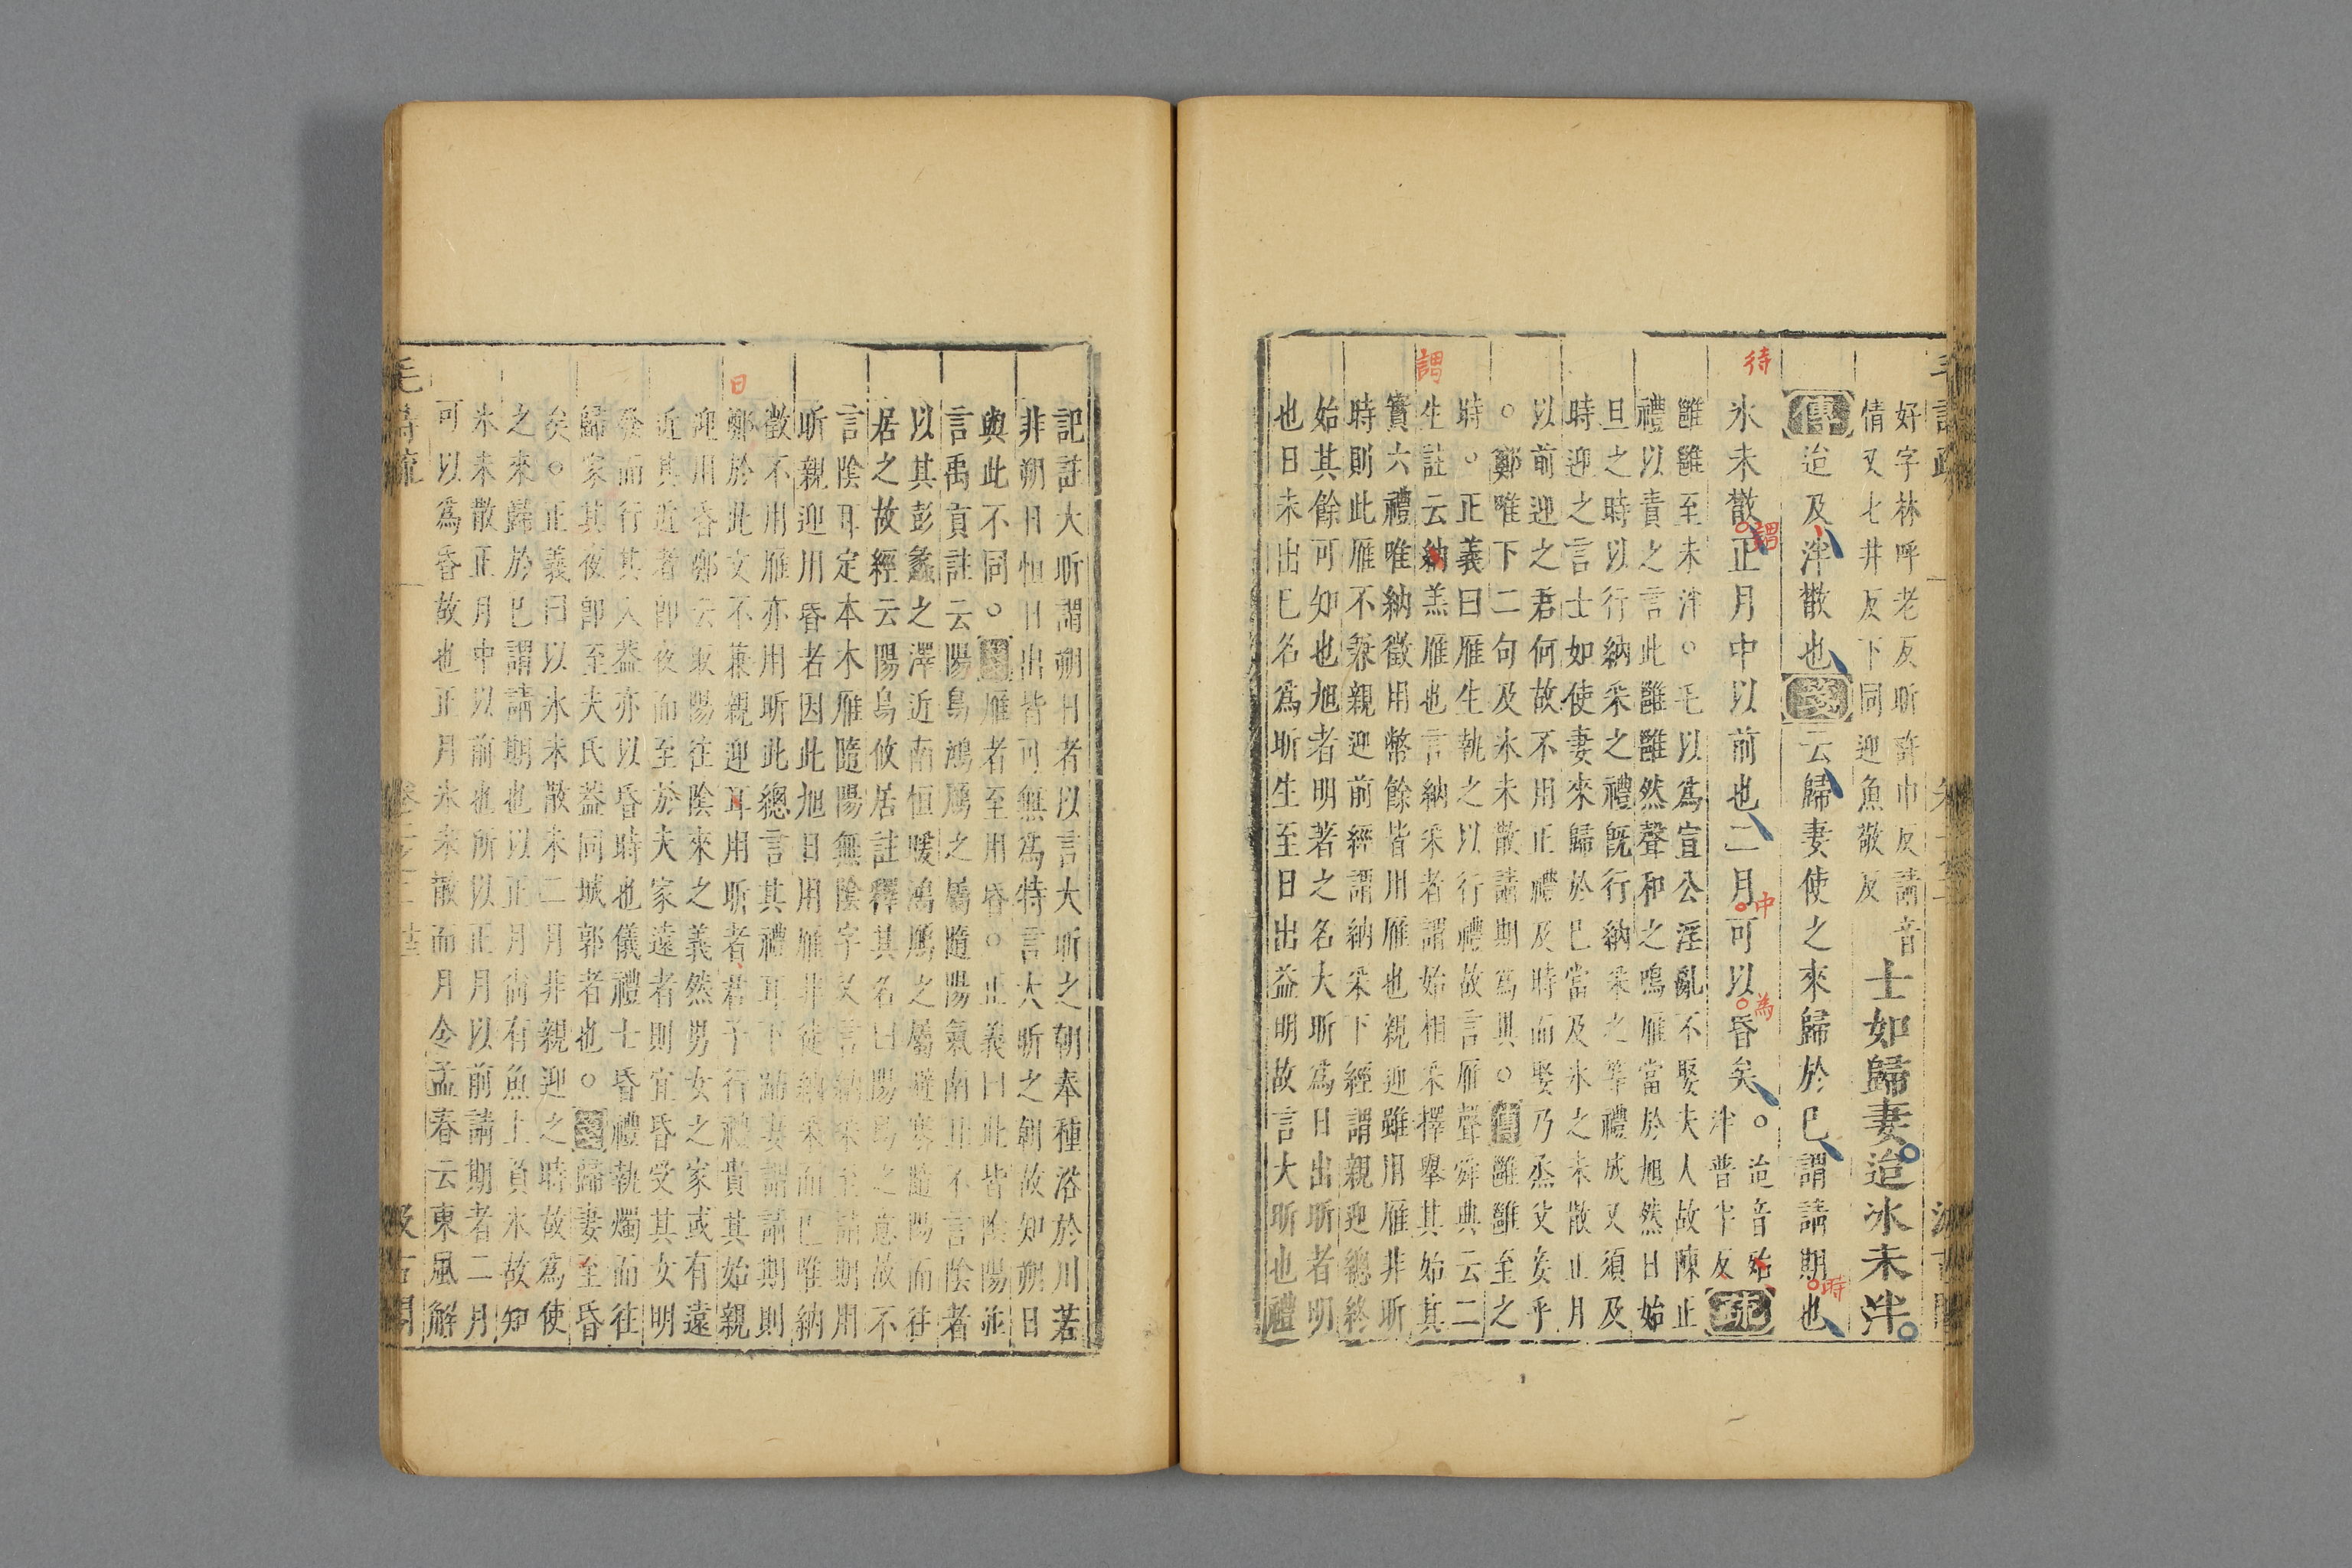 好字林呼老反昕許巾反請音
情又七井反下同迎魚敬反
士如歸妻迨冰未泮
傳迨及泮散也箋云歸妻使之來歸於已謂請期也
時
待
冰未散正月中以前也二月可以昏矣
謂
中
為
○迨音殆
泮普半反
疏
雝雝至未泮○毛以爲宣公淫亂不娶夫人故陳正
禮以責之言此雝雝然聲和之鳴雁當於旭然日始
旦之時以行納采之禮旣行納采之等禮成又須及
時迎之言士如使妻來歸於已當及冰之未散正月
以前迎之君何故不用正禮及時而娶乃烝父妾乎
○鄭唯下二句及冰未散請期爲異○傳雝雝至之
時○正義曰雁生執之以行禮故言雁聲舜典云二
謂
生註云納羔雁也言納采者謂始相采擇舉其始其
實六禮唯納徵用幣餘皆用雁也親迎雖用雁非昕
時則此雁不兼親迎前經謂納采下經謂親迎總終
始其餘可知也旭者明著之名大昕爲日出昕者明
也日未出已名爲昕生至日出益明故言大昕也禮
記註大昕謂朔日者以言大昕之朝奉種浴於川若
非朔日恒日出皆可無爲特言大昕之朝故知朔日
與此不同○箋雁者至用昏○正義曰此皆陰陽並
言禹貢註云陽鳥鴻鴈之屬隨陽氣南北不言陰者
以其彭蠡之澤近南恒暖鴻鴈之屬避寒隨陽而往
居之故經云陽鳥攸居註釋其名曰陽鳥之意故不
言陰耳定本木雁隨陽無陰字又言納采至請期用
昕親迎用昏者因此旭日用雁非徒納采而已唯納
徵不用雁亦用昕此總言其禮耳下歸妻謂請期則
日
鄭於此文不兼親迎耳用昕者君子行禮貴其始親
迎用昏鄭云取陽往陰來之義然男女之家或有遠
近其近者卽夜而至於夫家遠者則宜昏受其女明
發而行其入葢亦以昏時也儀禮士昏禮執燭而往
歸家其夜卽至夫氏葢同城郭者也○箋歸妻至昏
矣○正義曰以冰未散未二月非親迎之時故爲使
之來歸於已謂請期也以正月尚有魚上負冰故知
冰未散正月中以前也所以正月以前請期者二月
可以爲昏故也正月冰未散而月令孟春云東風解
毛詩疏